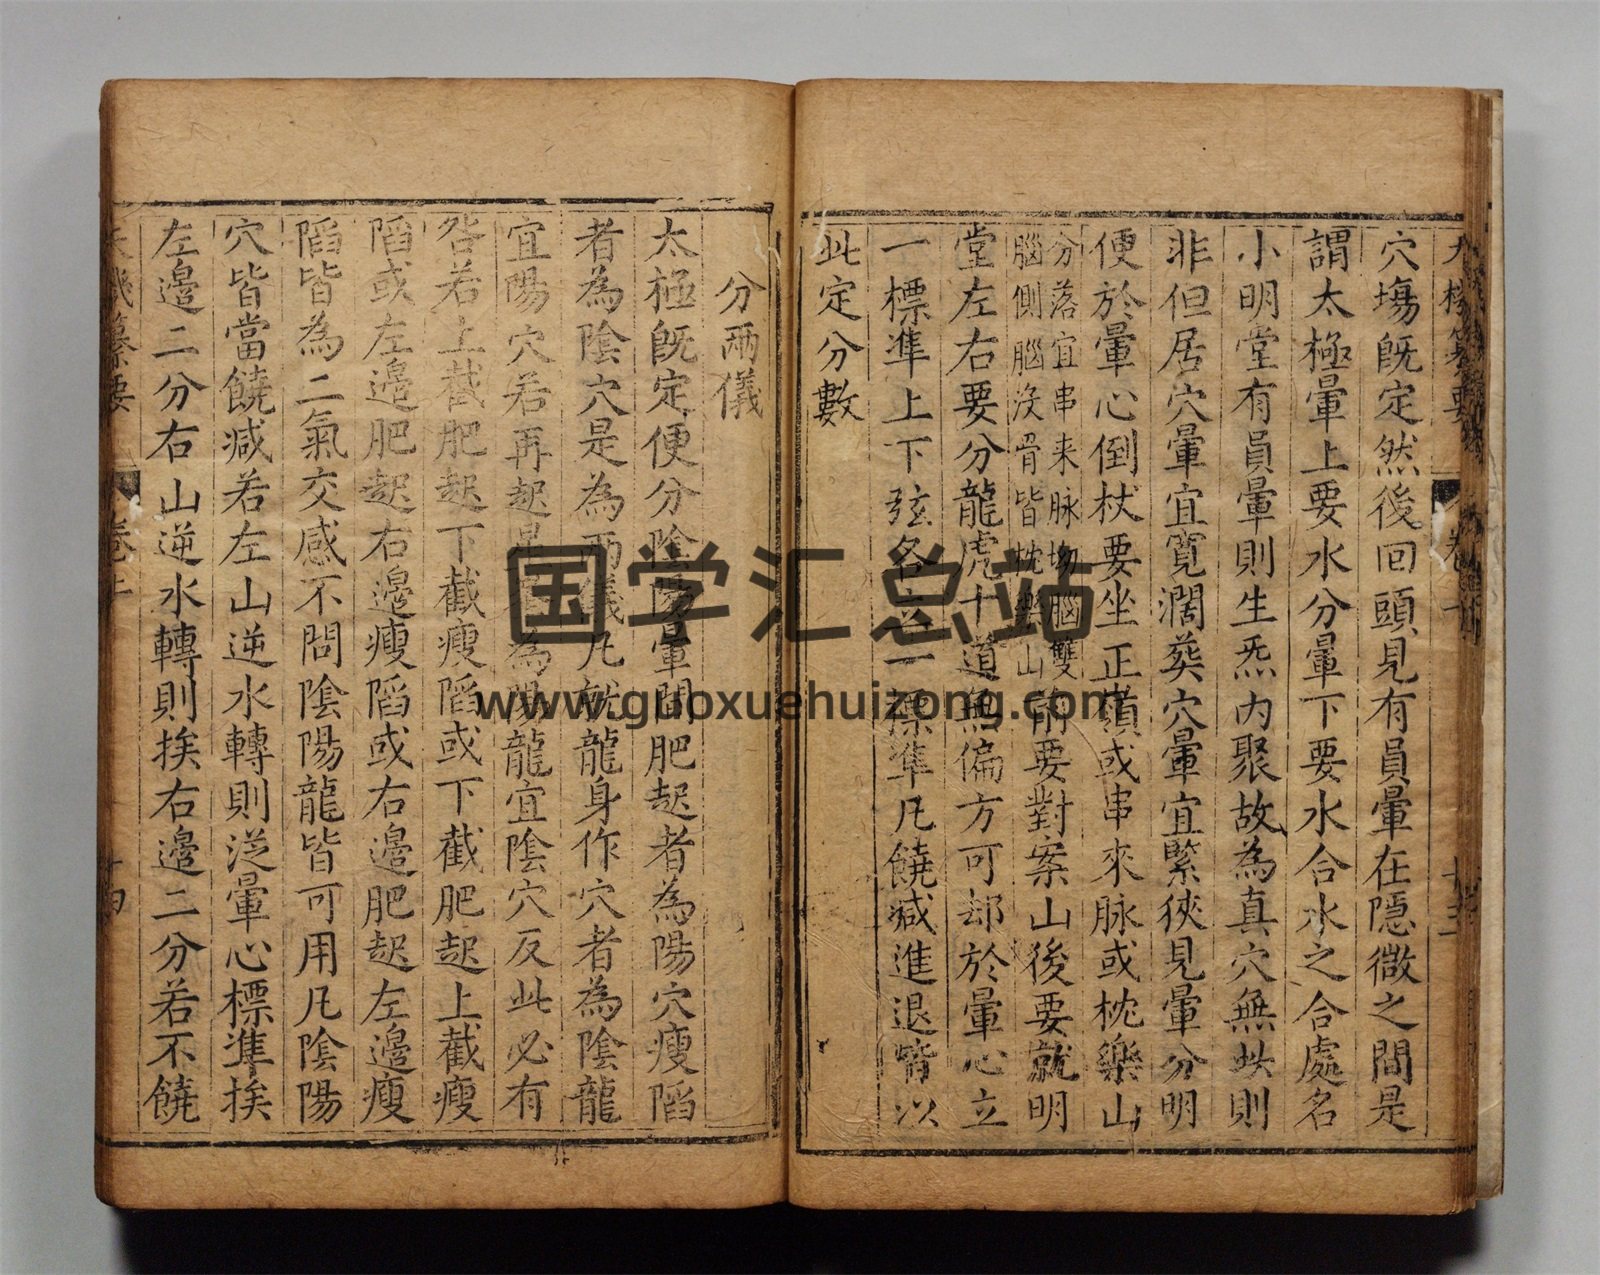 穴塲旣定然後回頭見有員暈在隱微之間是
謂太極暈上要水分暈下要水合水之合處名
小明堂有員暈則生炁内聚故為真穴無此則
非但居穴暈宜寛濶葬穴暈宜緊狹見暈分明
便於暈心倒杖要坐正嶺或串來脉或枕樂山
分落宜串来脉坳腦雙
腦側腦没骨皆枕樂山
前要對案山後要就明
堂左右要分龍虎十道無偏方可却於暈心立
一標準上下弦各立一標準凡饒減進退皆以
此定分數
分兩儀
太極旣定便分陰陽暈間肥起者為陽穴瘦䧟
者為陰穴是為兩儀凡就龍身作穴者為陰龍
宜陽穴若再起星為陽龍宜陰穴反此必有
咎若上截肥起下截瘦䧟或下截肥起上截瘦
䧟或左邉肥起右邉瘦䧟或右邉肥起左邉瘦
䧟皆為二氣交感不問陰陽龍皆可用凡陰陽
穴皆當饒減若左山逆水轉則泛暈心標準挨
左邉二分右山逆水轉則挨右邉二分若不饒
卷上
十四
国学汇总站
www.guoxuehuizong.com